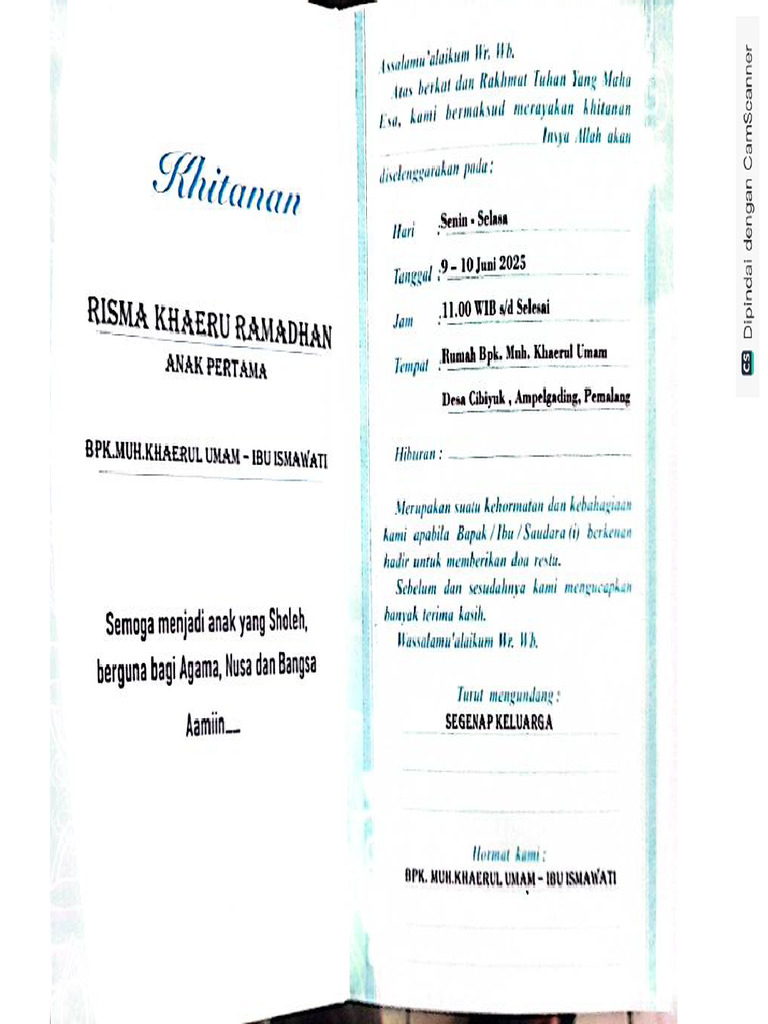 Khitanan
RISMA KHAERU RAMADHAN
ANAK PERTAMA
BPK.MUH.KHAERUL UMAM – IBU ISMAWATI
Semoga menjadi anak yang Sholeh,
berguna bagi Agama, Nusa dan Bangsa
Aamiin__
Assalamu'alaikum Wr. Wb.
Atas berkat dan Rakhmat Tuhan Yang Maha
Esa, kami bermaksud merayakan khitanan
Insya Allah akan
diselenggarakan pada :
Hari : Senin - Selasa
Tanggal : 9 – 10 Juni 2025
Jam : 11.00 WIB s/d Selesai
Tempat : Rumah Bpk. Muh. Khaerul Umam
Desa Cibiyuk , Ampelgading, Pemalang
Hiburan :
Merupakan suatu kehormatan dan kebahagiaan
kami apabila Bapak / Ibu / Saudara (i) berkenan
hadir untuk memberikan doa restu.
Sebelum dan sesudahnya kami mengucapkan
banyak terima kasih.
Wassalamu'alaikum Wr. Wb.
Turut mengundang :
SEGENAP KELUARGA
Hormat kami :
BPK. MUH.KHAERUL UMAM – IBU ISMAWATI
CS Dipindai dengan CamScanner